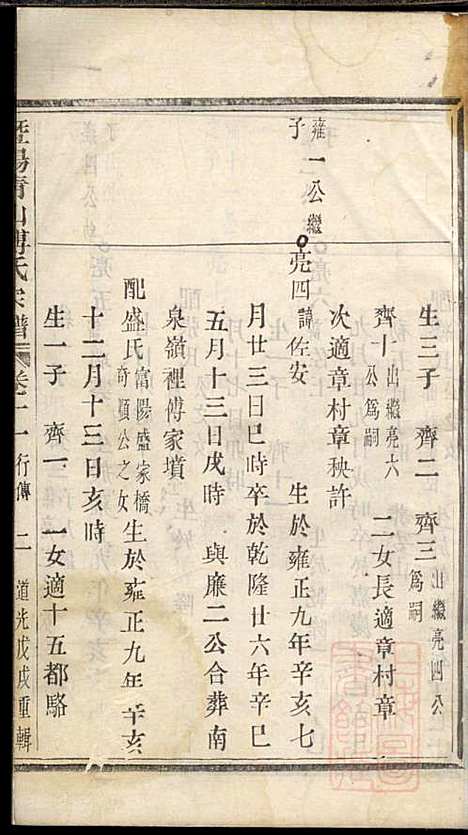 生三子 齊二 齊三出繼亮四公為嗣
齊十出繼亮六公為嗣 二女長適章村章
次適章村章秧許
雍一公繼子
亮四諱佐安 生於雍正九年辛亥七
月廿三日巳時卒於乾隆廿六年辛巳
五月十三日戌時 與廉二公合葬南
泉嶺裡傅家墳
配盛氏富陽盛家橋奇順公之女生於雍正九年辛亥
十二月十三日亥時
生一子 齊一 一女適十五都駱
暨陽青山傅氏宗譜 卷十一 行傳 二 道光戊戌重輯